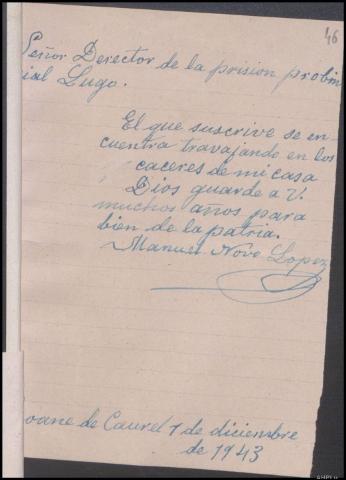 46
Señor Derector de la prision probin
ial Lugo.
El que suscrive se en
cuentra travajando en los
caceres de mi casa
Dios guarde a V.
muchos años para
bien de la patria.
Manuel Novo Lopez
oane de Caurel 1 de diciembre
de 1943